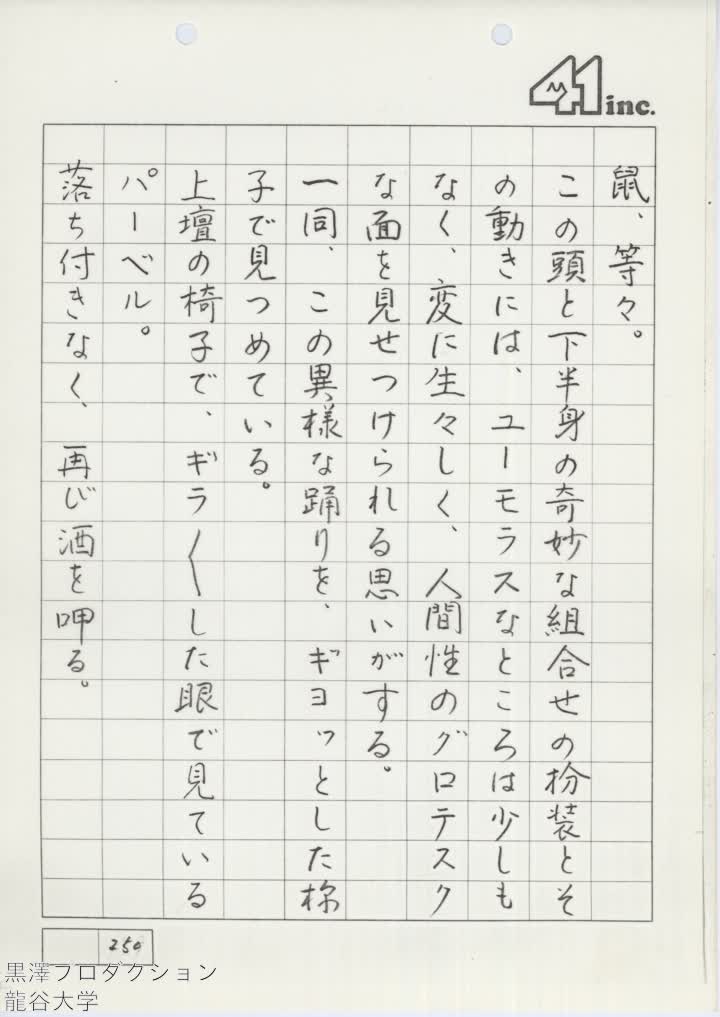 41 inc.
鼠、等々。
この頭と下半身の奇妙な組合せの扮装とそ
の動きには、ユーモラスなところは少しも
なく、変に生々しく、人間性のグロテスク
な面を見せつけられる思いがする。
一同、この異様な踊りを、ギヨッとした様
子で見つめている。
上壇の椅子で、ギラ〱した眼で見ている
パーベル。
落ち付きなく、再び酒を呷る。
250
黒澤プロダクション
龍谷大学